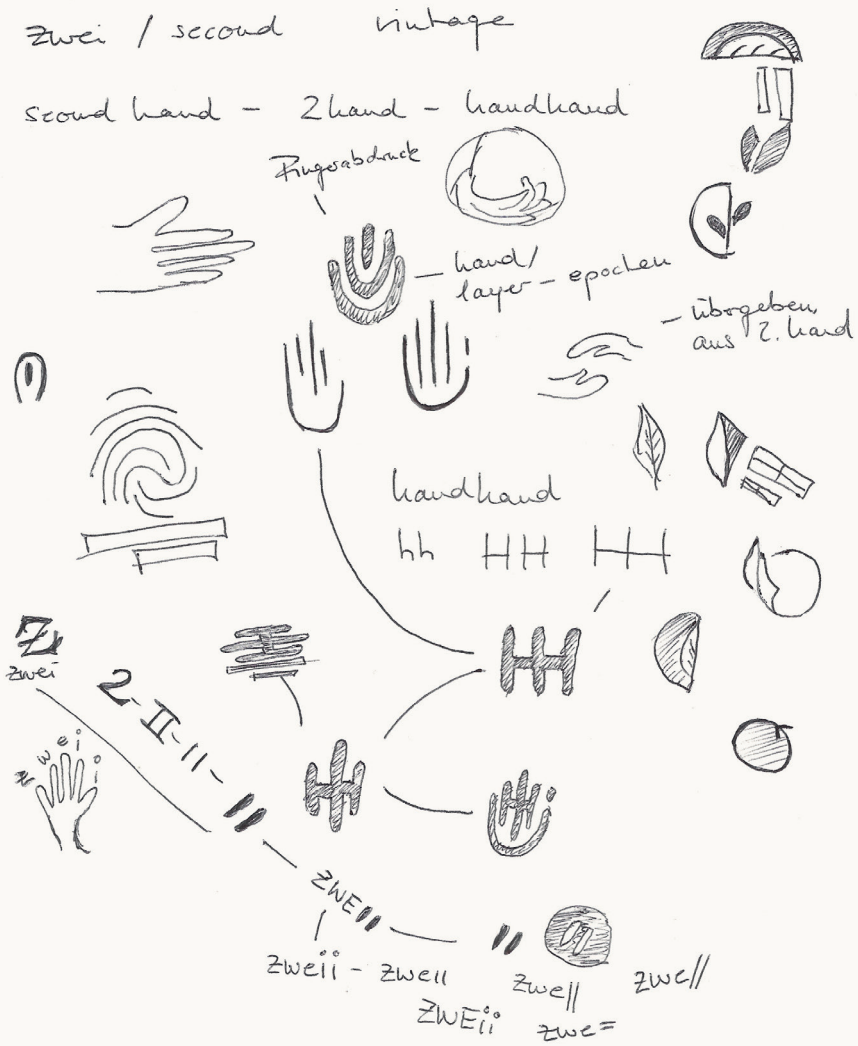 zwei / second vintage
second hand - 2hand - handhand
Fingerabdruck
hand/
layer - epochen
übergeben,
aus 2. hand
handhand
hh HH HH
Z
zwei
2-II-11-
z w e i i
ZWE
zweii - zwe11
zwe// zwe//
ZWEii zwe=